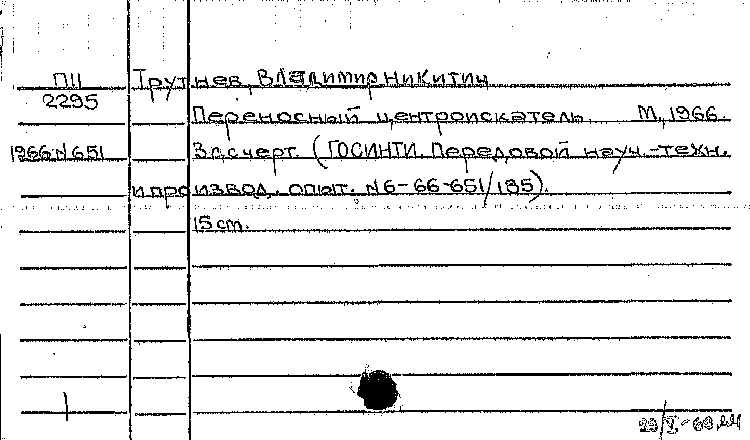 П11 Трутнев, Владимир Никитич
2295
Переносный центроискатель. М, 1966.
1966 N651 3 л.с черт. (ГОСИНТИ. Передовой науч.-техн.
и производ. опыт. N6-66-651/185).
15 cm.